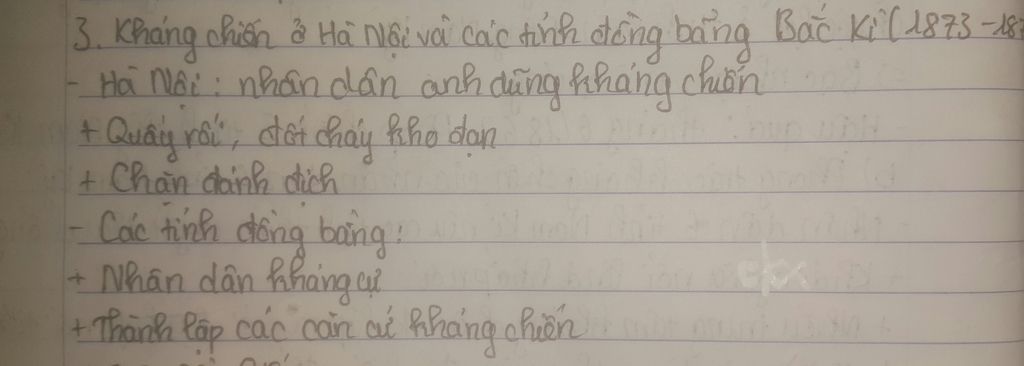 3. Kháng chiến ở Hà Nội và các tỉnh đồng bằng Bắc Kì (1873-18
- Hà Nội: nhân dân anh dũng kháng chiến
+ Quấy rối, đốt cháy kho đạn
+ Chặn đánh địch
- Các tỉnh đồng bằng:
+ Nhân dân kháng cự
+ Thành lập các căn cứ kháng chiến